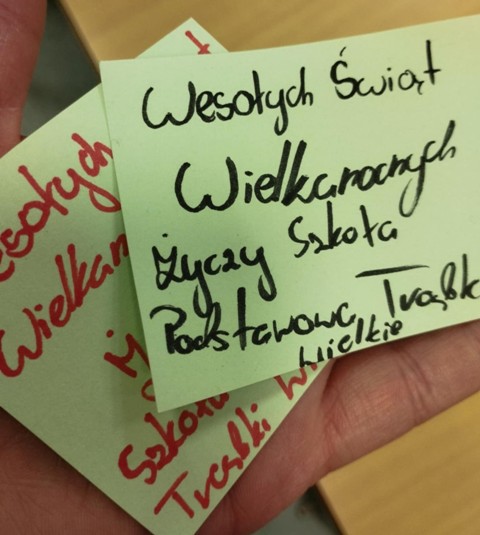 Wesołych Świąt
Wielkanocnych
życzy Szkoła
Podstawowa Trąbki
Wielkie
esołych
Wielkan
Ż
Szkoła
Trąbki Wi